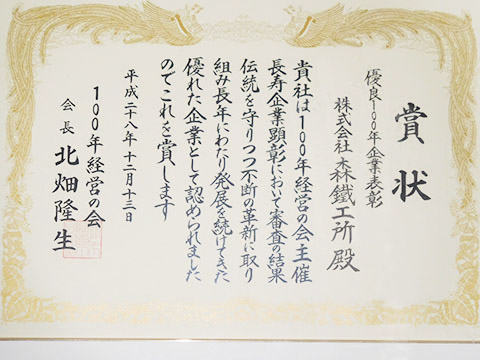 賞状
優良100年企業表彰
株式会社森鐵工所殿
貴社は100年経営の会主催
長寿企業顕彰において審査の結果
伝統を守りつつ不断の革新に取り
組み長年にわたり発展を続けてきた
優れた企業として認められました
のでこれを賞します
平成二十八年十二月十三日
100年経営の会
会長 北畑隆生